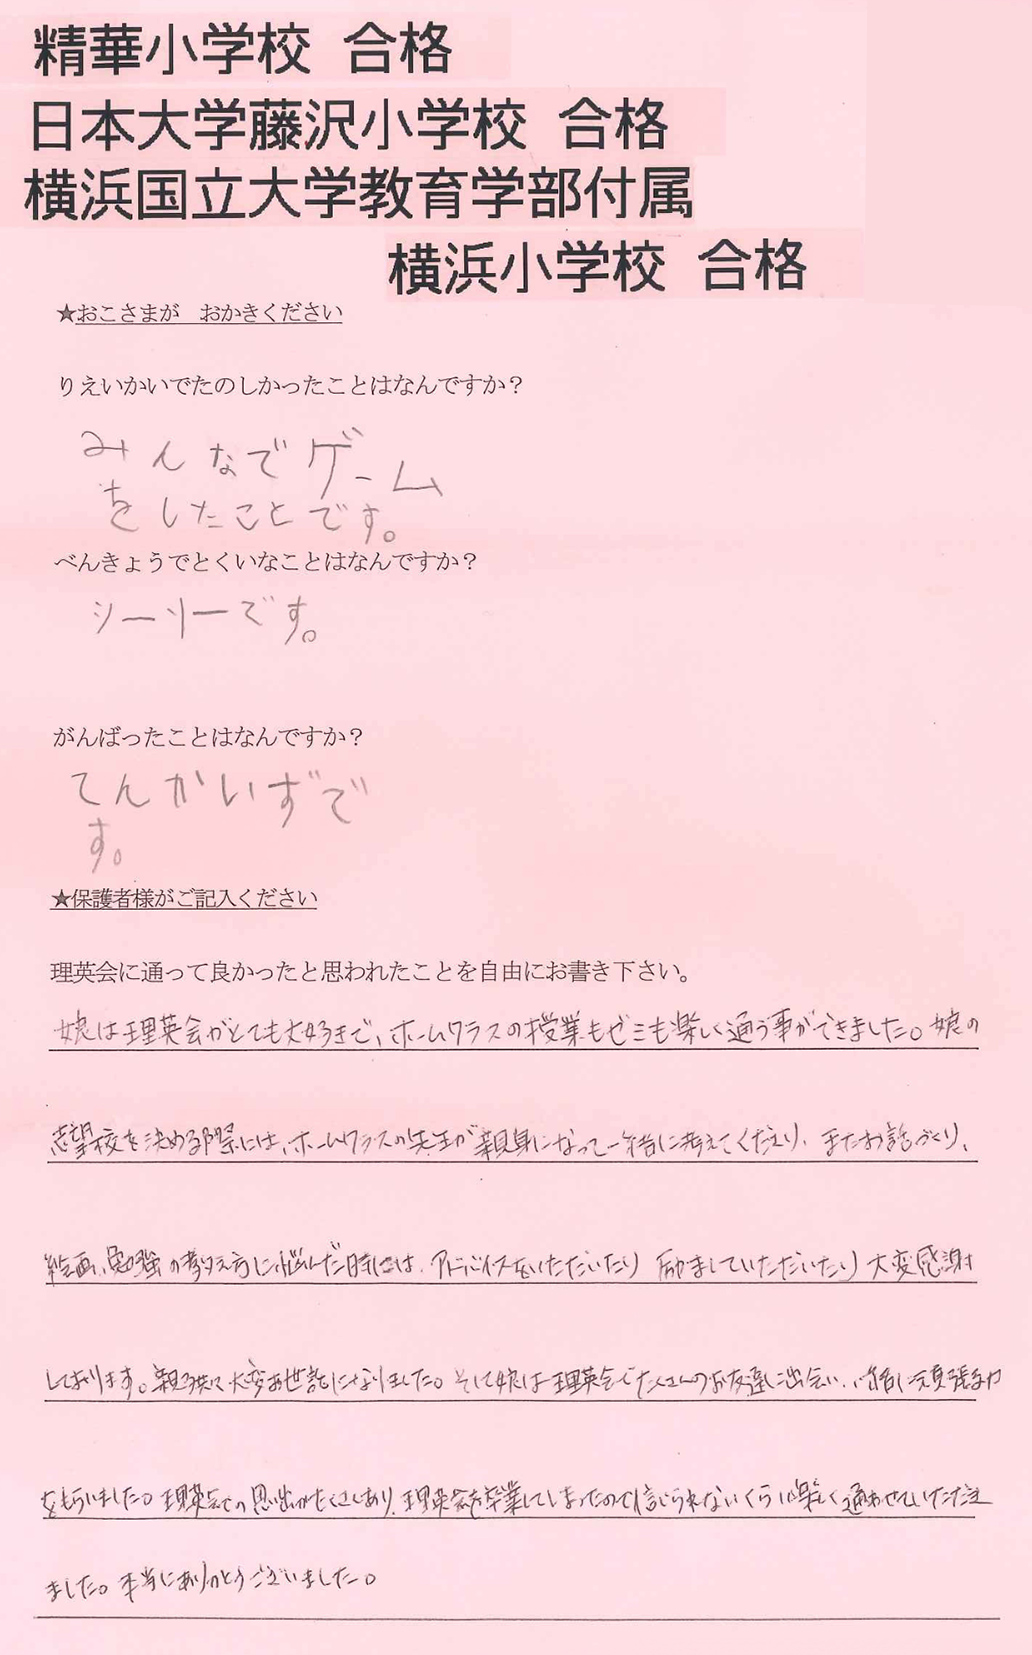 精華小学校 合格
日本大学藤沢小学校 合格
横浜国立大学教育学部付属
横浜小学校 合格
★おこさまが おかきください
りえいかいでたのしかったことはなんですか？
みんなでゲーム
をしたことです。
べんきょうでとくいなことはなんですか？
シーソーです。
がんばったことはなんですか？
てんかいずで
す。
★保護者様がご記入ください
理英会に通って良かったと思われたことを自由にお書き下さい。
娘は理英会がとても大好きで、ホームクラスの授業もゼミも楽しく通う事ができました。娘の
志望校を決める際には、ホームクラスの先生が親身になって一緒に考えてくださり、またお話づくり、
絵画、勉強の考え方に悩んだ時には、アドバイスをいただいたり 励ましていただいたり 大変感謝
しております。親子共に大変お世話になりました。そして娘は理英会でたくさんのお友達に出会い、一緒に頑張る力
をもらいました。理英会での思い出がたくさんあり、理英会を卒業してしまったので信じられないくらい楽しく通わせていただき
ました。本当にありがとうございました。